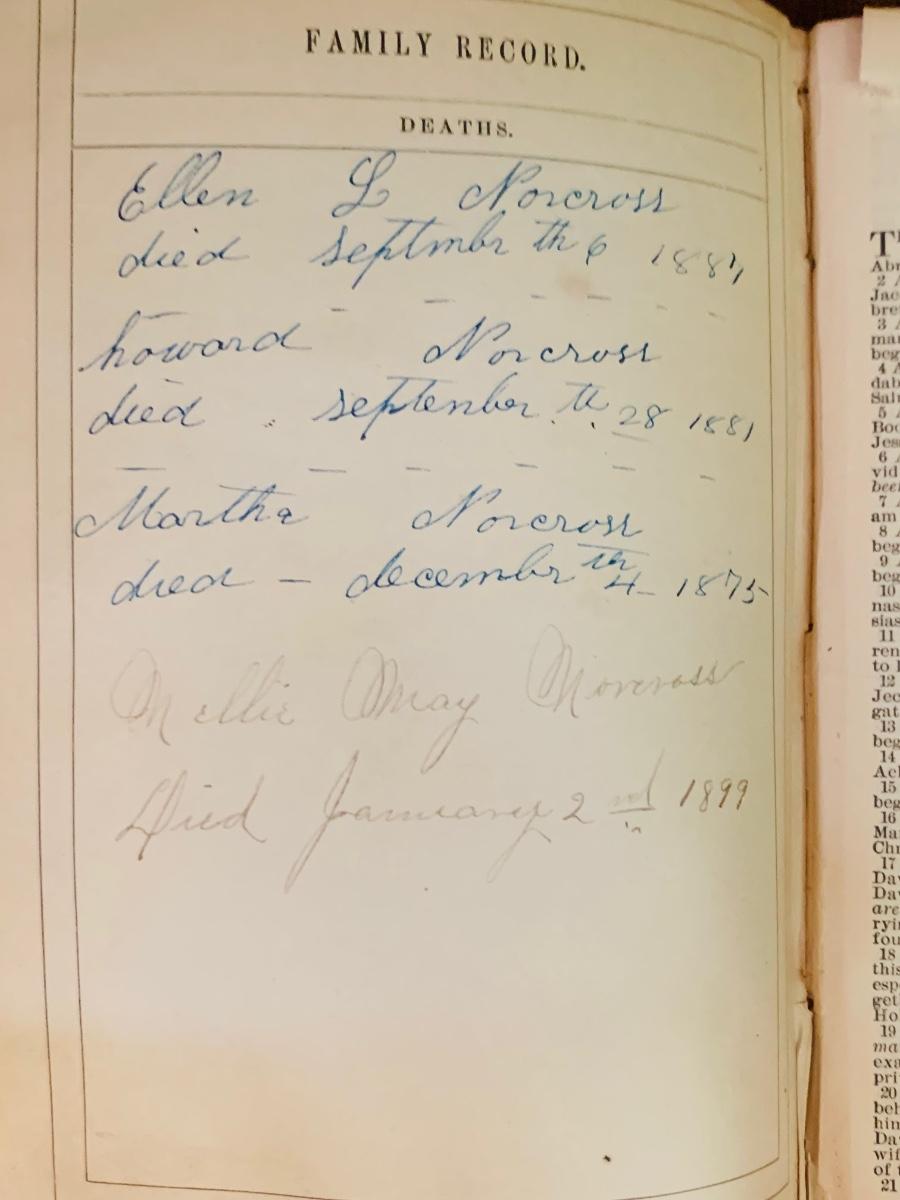 FAMILY RECORD.
DEATHS.
Ellen L Norcross
died septmbr th 6
howard Norcross
died september th 28 1881
Martha Norcross
died – decembr th 4 1875
Mellie May Norcross
Died January 2 nd 1899
Abr
2 A
Jac
bre
3 A
mar
beg
4 A
dab
Salr
5 A
Boo
Jes
6 A
vid
beer
7 A
am
8 A
beg
9 A
beg
10
nas
sias
11
ren
to
12
Jec
gat
13
beg
14
Ach
15
beg
16
Ma
Chr
17
Da
Da
are
ryi
fou
18
this
esp
get
Ho
19
ma
exa
pri
20
beh
him
Da
wif
of
21